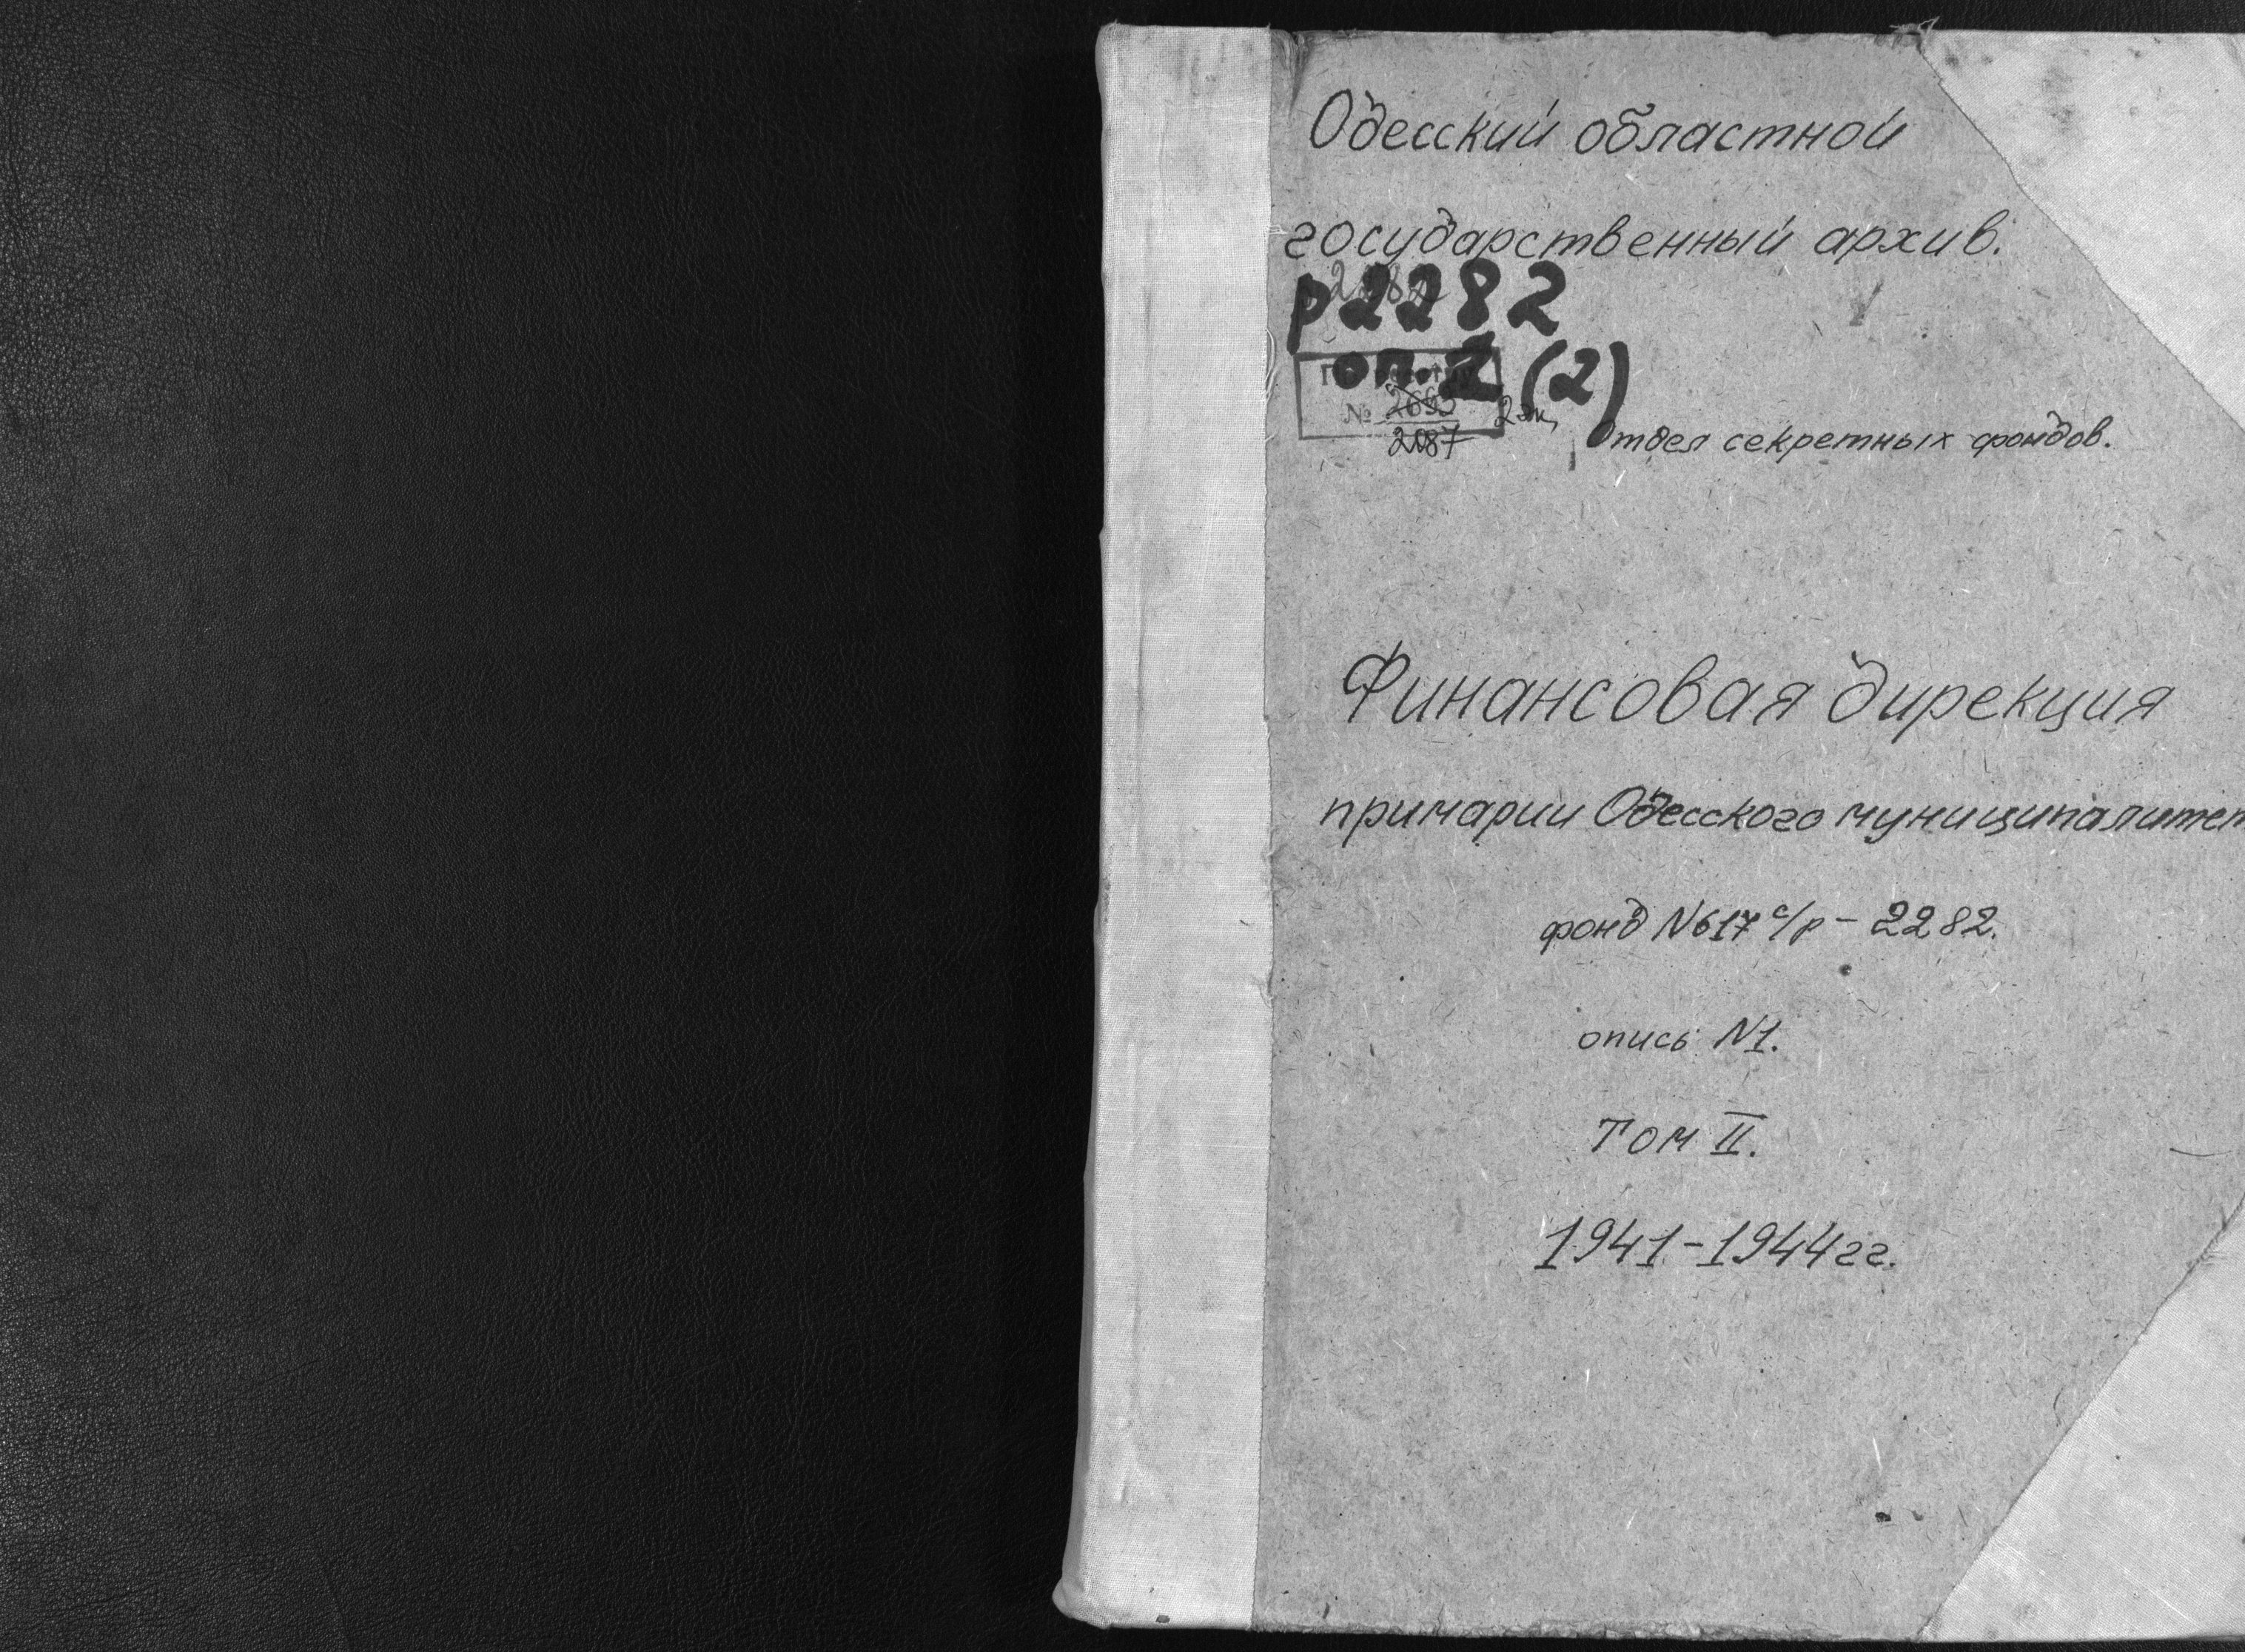 Одесский областной
государственный архив.
р2282
оп. 1 (2)
№ 2693 2 эк.
2087
Отдел секретных фондов.
Финансовая дирекция
примарии Одесского муниципалитет
фонд N617 с/р - 2282.
опись N1.
Том II.
1941-1944гг.